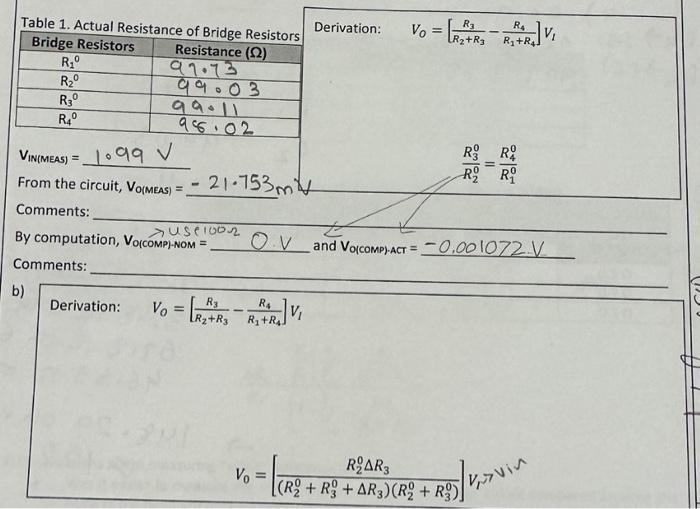 Table 1. Actual Resistance of Bridge Resistors
Bridge Resistors Resistance (Ω)
R₁⁰ 97.73
R₂⁰ 99.03
R₃⁰ 99.11
R₄⁰ 98.02
Derivation: V_O = [R₃/(R₂+R₃) − R₄/(R₁+R₄)] V_I
R₃⁰/R₂⁰ = R₄⁰/R₁⁰
V_IN(MEAS) = 1.99 V
From the circuit, V_O(MEAS) = - 21.753mV
Comments:
→ use 100Ω
By computation, V_O(COMP)-NOM = 0.V and V_O(COMP)-ACT = -0.001072.V
Comments:
b)
Derivation: V_O = [R₃/(R₂+R₃) − R₄/(R₁+R₄)] V_I
V_O = [R₂⁰ΔR₃/((R₂⁰ + R₃⁰ + ΔR₃)(R₂⁰ + R₃⁰))] V_I → Vin